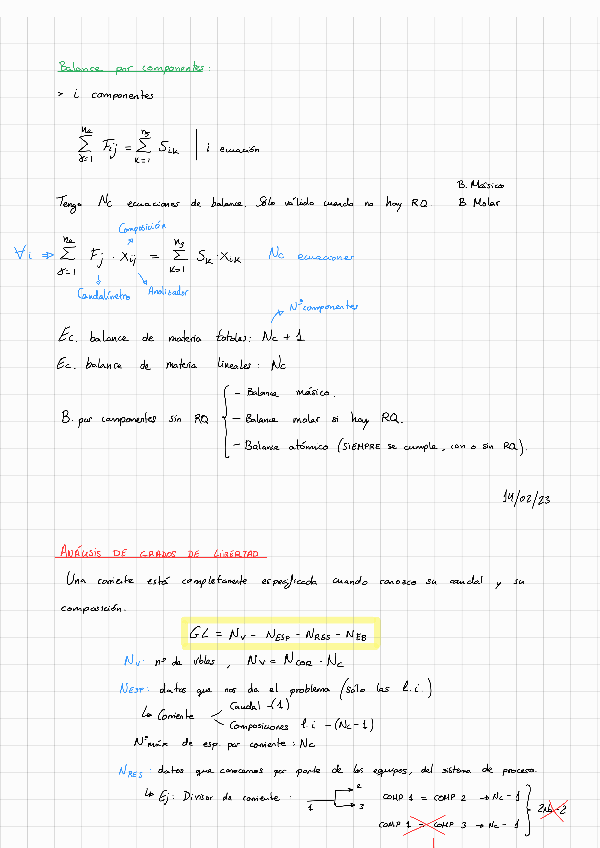 Balance por componentes:
> i componentes
ne ∑ j=1 Fij = ns ∑ k=1 Sik | i ecuación
B. Másico
Tengo Nc ecuaciones de balance. Sólo válido cuando no hay RQ B Molar
Composición
∀i ⇒ ne ∑ j=1 Fj · Xij = ns ∑ k=1 Sk · Xik Nc ecuaciones
Caudalímetro Analizador
Nº componentes
Ec. balance de materia totales: Nc + 1
Ec. balance de materia lineales: Nc
- Balance másico.
B. por componentes sin RQ - Balance molar si hay RQ.
- Balance atómico (SIEMPRE se cumple, con o sin RQ).
14/02/23
ANÁLISIS DE GRADOS DE LIBERTAD
Una corriente está completamente especificada cuando conozco su caudal y su
composición.
GL = NV - NESP - NRES - NEB
NV: nº de vbles, NV = NCOR · NC
NESP: datos que nos da el problema (sólo las l.i)
↳ Corriente Caudal -(1)
Composiciones l.i -(Nc-1)
Nº máx de esp. por corriente: Nc
NRES: datos que conocemos por parte de los equipos, del sistema de proceso.
↳ Ej: Divisor de corriente: 1 2 3 COMP 1 = COMP 2 → Nc - 1
COMP 1 = COMP 3 → Nc - 1